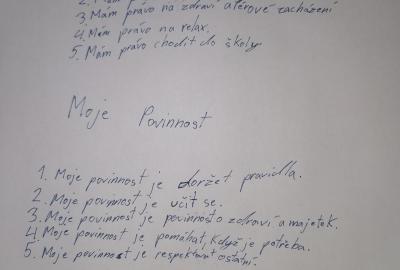 2. Mám
3. Mám právo na zdraví a zacházení
4. Mám právo na relax.
5. Mám právo chodit do školy
Moje Povinnost
1. Moje povinnost je doržet pravidla.
2. Moje povinnost je učit se.
3. Moje povinnost je povinnosto zdraví a majetek.
4. Moje povinnost je pomáhat, Když je potřeba.
5. Moje povinnost je respektovat ostatní.